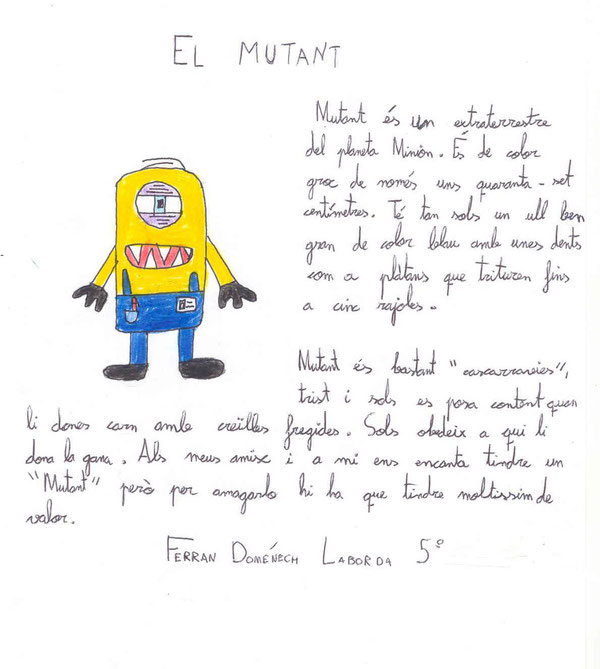 EL MUTANT
Mutant és un extraterrestre
del planeta Miniòn. És de color
groc de només uns quaranta-set
centímetres. Té tan sols un ull ben
gran de color blau amb unes dents
com a plàtans que trituren fins
a cinc rajoles.
Mutant és bastant "cascarravies",
trist i sols es posa content quan
li dones carn amb creïlles fregides. Sols obedeix a qui li
dona la gana. Als meus amixc i a mi ens encanta tindre un
"Mutant" però per amagarlo hi ha que tindre moltissim de
valor.
FERRAN DOMÉNECH LABORDA 5º